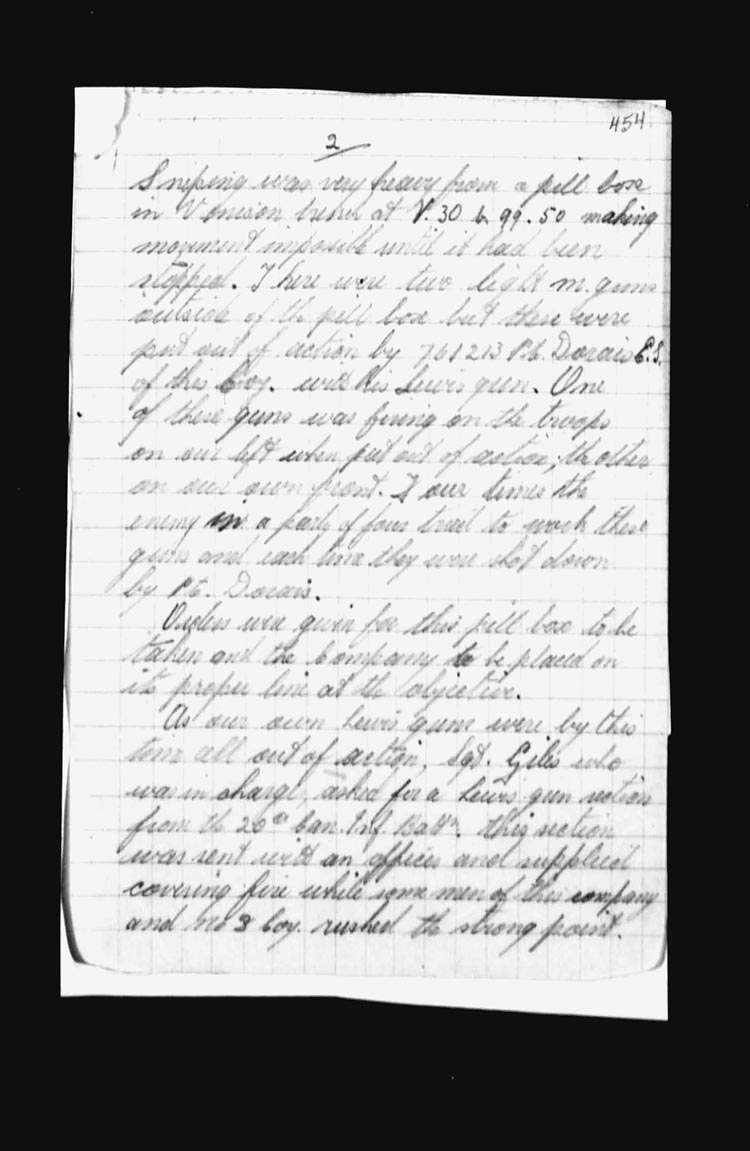 454
2
Sniping was very heavy from a pill box
in Venison trench at V.30 b 99.50 making
movement imposible until it had been
stopped. There were two light m. guns
outside of the pill box but these were
put out of action by 761213 Pte. Dorais E.S.
of this Coy. with his Lewis gun. One
of these guns was firing on the troops
on our left when put out of action, the other
on our own front. Four times the
enemy in a party of four tried to work these
guns and each time they were shot down
by Pte. Dorais.
Orders were given for this pill box to be
taken and the Company to be placed on
its proper line at the objective.
As our own Lewis guns were by this
time all out of action, Sgt. Giles who
was in charge, asked for a Lewis gun section
from the 20th Can. Inf. Battn. this section
was sent with an officer and supplied
covering fire while some men of this company
and No 3 Coy. rushed the strong point.